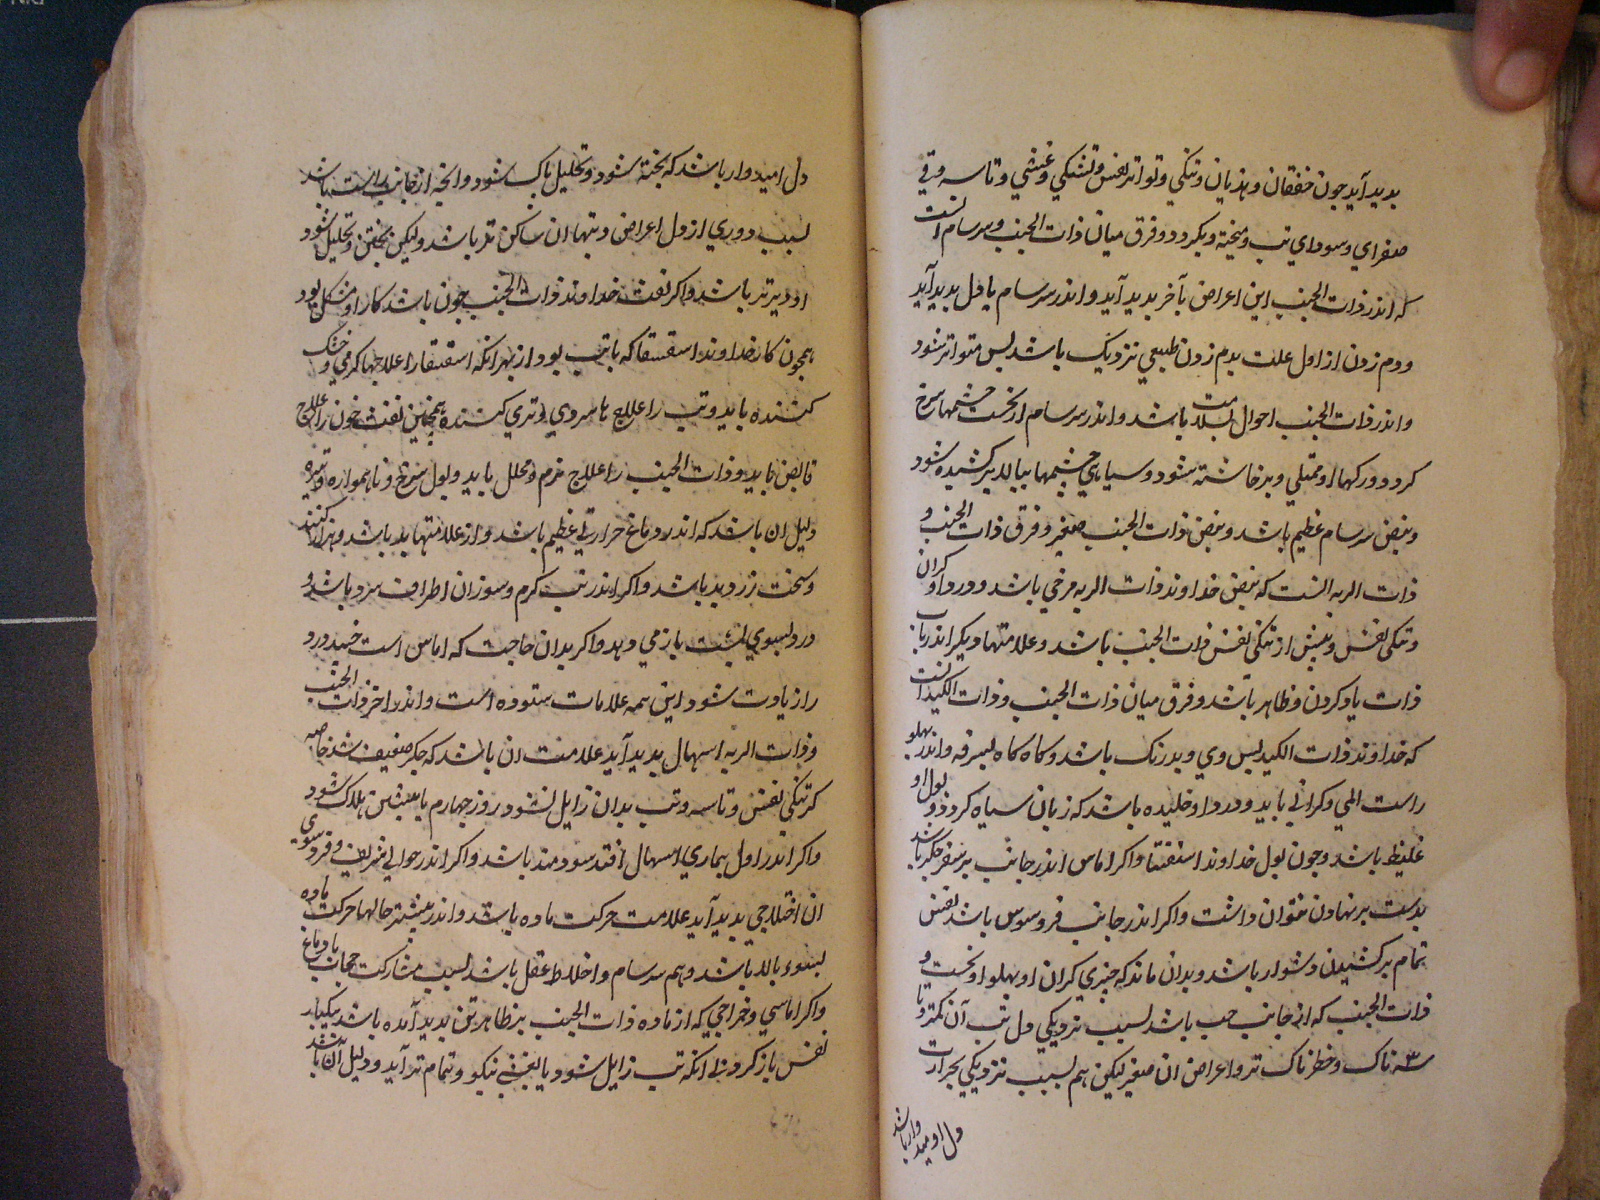 بدید آید جون خفقان و هذیان و تنکی و تواتر نفس و تشنکی و غشی و تاسه و تی
صفرای و سودای تب و میخته و یکرد و فرق میان ذات الجنب و سرسام انست
که اندر ذات الجنب این اعراض بآخر بدید آید و اندر سرسام باول بدید آید
و دم زدن از اول علت بدم زدن طبیعی نزدیک باشد پس متواتر شود
و اندر ذات الجنب احوال بسلامت باشد و اندر سرسام از نخست چشمها سرخ
کردد و رکها او ممتلی و برخاشته شود و سیاهی چشمها ببالا بر کشیده شود
و نبض سرسام عظیم باشد و نبض ذات الجنب صغیر و فرق ذات الجنب و
ذات الریه انست که نبض خداوند ذات الریه مرخی باشد و درد او کران
و تنکی نفس وی بیش از تنکی نفس ذات الجنب باشد و علامتها دیکر اندر باب
ذات یاد کردن و ظاهر باشد و فرق میان ذات الجنب و ذات الکبد انست
که خداوند ذات الکبد بس وی و بدرنک باشد و کاه کاه بسرفه و اندر بهلو
راست المی و کرانی یابد و درد او خلیده باشد که زبان سیاه کردد و بول او
غلیظ باشد و جون بول خداوند استسقا و اکر اماس اندر جانب برسفر جکر باشد
بدست بر نهادن نتوان داشت و اکر اندر جانب فروسوس باشد نفس
تمام بر کشیدن دشوار باشد و بدان ماند که جیزی کران او بهلو او نخست و
ذات الجنب که از جانب جب باشد بسبب نزدیکی دل تب آن کمتر و تا
سه ناک و خطرناک تر و اعراض ان صغیر لیکن هم بسبب نزدیکی بحرارت
دل اومیدوار باشد
دل امیدوار باشد که بخته شود و تحلیل باک شود و انجه از جانب راست باشد
بسبب دوری از دل اعراض و تبها ان ساکن تر باشد و لیکن بختن و تحلیل شود
او دیرتر باشد و اکر نفث خداوند ذات الجنب جون باشد کار او مشکل بود
همجون کار خداوند استسقا که با تب بود از بهر انکه استسقا را علاجها کرمی و خشک
کننده باید و تب را علاج با سردی و تری کننده همجنین نفث خون را علاج
قابض باید و ذات الجنب را علاج نرم و محلل باید و بول سرخ و ناهمواره و تیره
دلیل ان باشد که اندر دماغ حرارتی عظیم باشد و از علامتها بد باشد و هزار کنند
و سخت زرد بد باشد و اکر اندر تب کرم و سوزان اطراف سرد باشد و
درد بسوی پشت باز می دهد و اکر بدان حاجت که اماس است خسپد درد
را زیادت شود این همه علامات ستوده است و اندر اخر ذات الجنب
و ذات الریه اسهال بدید آید علامت ان باشد که جکر ضعیف شد خاصه
کر تنکی نفس و تاسه و تب بدان زایل نشود روز جهارم یا بیشتر هلاک شود
و اکر اندر اول بیماری اسهال افتد سودمند باشد و اکر اندر حوالی شراسیف و فروسوی
ان اختلاجی بدید آید علامت حرکت ماده باشد و اندر بیشتر حالها حرکت ماده
بسوء بالا باشد و هم سرسام و اختلاط عقل باشد بسبب مشارکت حجاب با دماغ
و اکر اماسی و خراجی که از ماده ذات الجنب بر ظاهر تن بدید آمده باشد بیکبار
نفس باز کردد بی انکه تب زایل شود یا نفثی نیکو و تمام تر آید و دلیل آن باشد